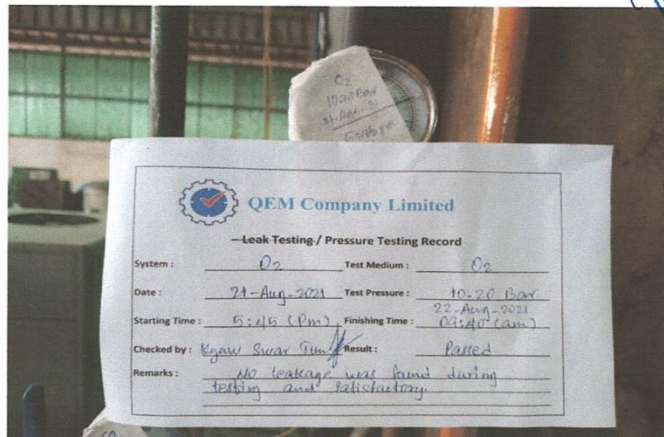 O2
10.20 Bar
21-Aug-21
5:45pm
QEM Company Limited
Leak Testing / Pressure Testing Record
System : O2 Test Medium : O2
Date : 21-Aug-2021 Test Pressure : 10.20 Bar
Starting Time : 5:45 (Pm) Finishing Time : 22-Aug-2021 09:40 (am)
Checked by : Kyaw Swar Tun Result : Passed
Remarks : No leakage was found during
testing and satisfactory.